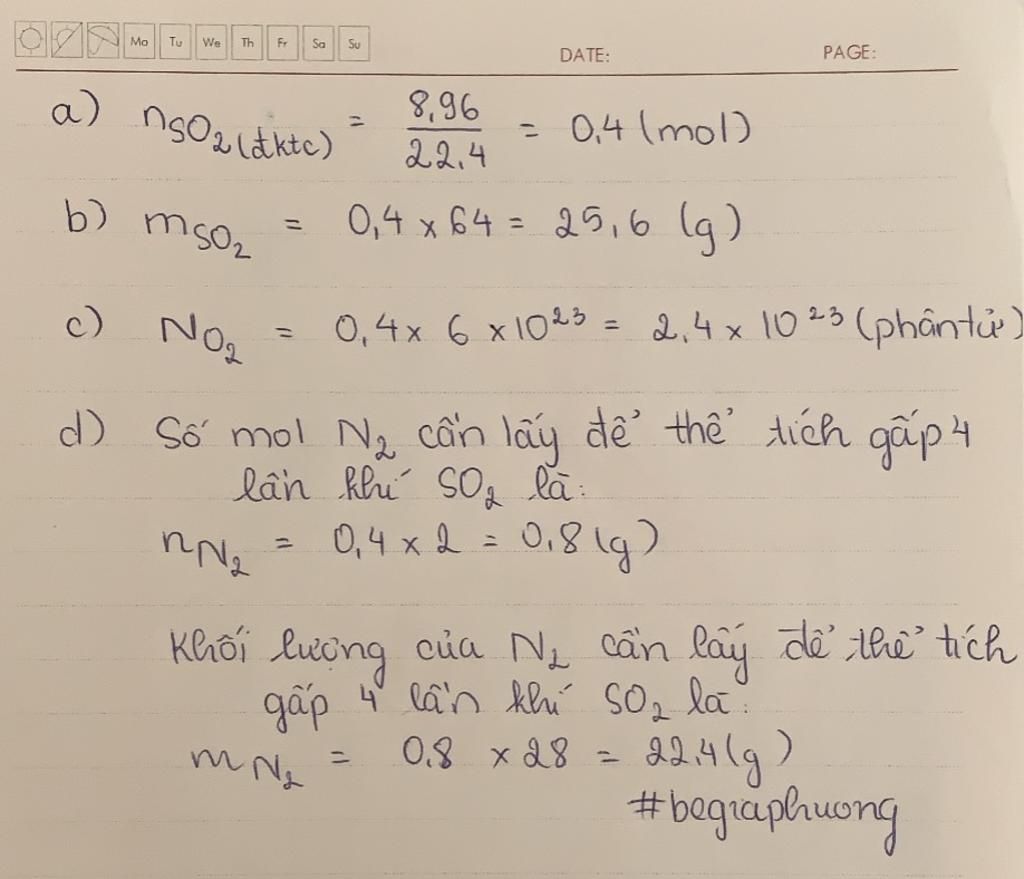 Mo Tu We Th Fr Sa Su DATE: PAGE:
a) nSO₂(đktc) = 8,96/22,4 = 0,4 (mol)
b) mSO₂ = 0,4 × 64 = 25,6 (g)
c) NO₂ = 0,4 × 6 × 10²³ = 2,4 × 10²³ (phân tử)
d) Số mol N₂ cần lấy để thể tích gấp 4
lần khí SO₂ là:
nN₂ = 0,4 × 2 = 0,8 (g)
Khối lượng của N₂ cần lấy để thể tích
gấp 4 lần khí SO₂ là:
mN₂ = 0,8 × 28 = 22,4 (g)
#begiaphuong